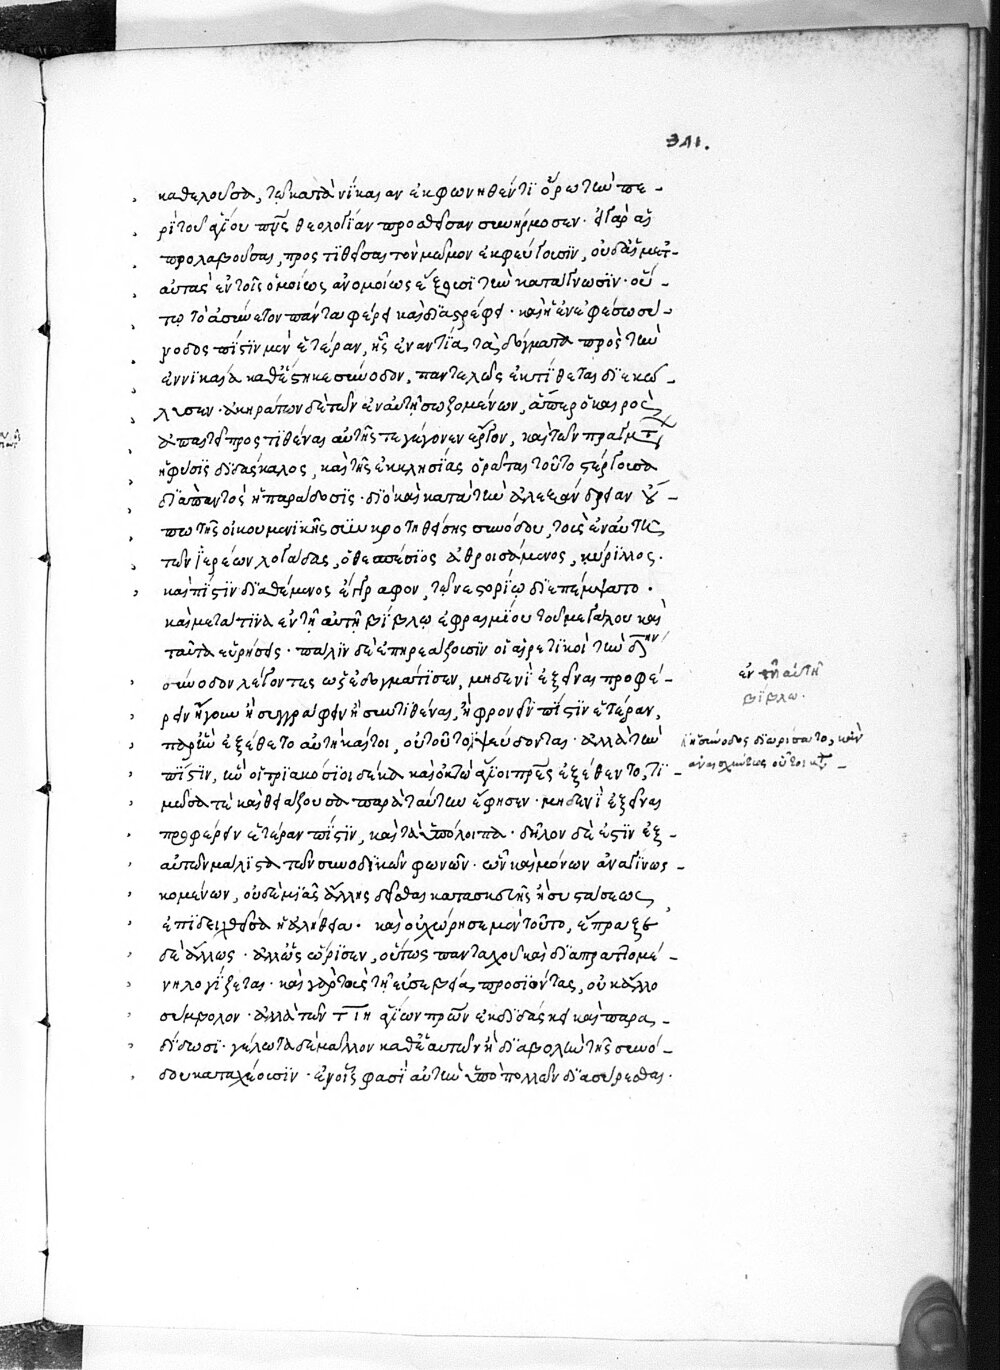 311.
καθελοῦσα, τῷ κατὰ νίκαιαν ἐκφωνηθέντι ὅρῳ τὴν πε-
ρὶ τοῦ ἁγίου πνς θεολογίαν προσθεῖσα συνήρμοσεν· εἰ γὰρ αἱ
προλαβοῦσαι, προστιθεῖσαι τὸν μῶμον ἐκφεύγουσϊν, οὐδ' αἱ μετ-
αὐτὰς ἐν τοῖς ὁμοίως ἀνομοίως ἕξουσι τὴν κατάγνωσϊν· οὕ-
τω τὸ ἀσύνετον πάντα φέρει καὶ διαστρέφει· καὶ ἡ ἐν ἐφέσω σύ-
νοδος πίστϊν μὲν ἑτέραν, ἧς ἐναντία τὰ δόγματα πρὸς τὴν
ἐν νικαία καθέστηκε σύνοδον, παντελῶς ἐκτίθεσθαι διεκώ-
λυσεν· ἀκηράτων δὲ τῶν ἐν αὐτῇ σωζομένων, ἅπερ ὁ καιρὸς
ἀπαιτεῖ προστιθέναι αὐτῆς τε γέγονεν ἔργον, καὶ τῶν πραγμτ
ἡ φύσϊς διδάσκαλος, καὶ τῆς ἐκκλησίας ὁρᾶται τοῦτο στέργουσα
διαπαντὸς ἡ παράδοσϊς· διὸ καὶ κατὰ τὴν ἀλεξάνδρειαν
πω τῆς οἰκουμενικῆς συγκροτηθείσης συνόδου, τοὺς ἐν αὐτῇ
τῶν ἱερέων λογάδας, ὁ θεσπέσϊος ἀθροισάμενος, κύριλλος.
καὶ πίστϊν διαθέμενος ἔγγραφον, τῷ νεστορίῳ διεπέμψατο.
καὶ μετά τινα ἐν τῇ αὐτῇ βίβλῳ ἐφραιμίου τοῦ μεγάλου καὶ
ταῦτα εὑρήσεις· πάλϊν δὲ ἐπηρεάζουσϊν οἱ αἱρετϊκοὶ τὴν δην
σύνοδον λέγοντες ὡς ἐδογμάτϊσεν, μηδενὶ ἐξεῖναι προφέ-
ρειν ἤγουν ἢ συγγράφειν ἢ συντιθέναι, ἢ φρονεῖν πίστϊν ἑτέραν,
παρ' ἣν ἐξέθετο αὐτὴ καίτοι, οὐ τοῦτο ψεύδονται· ἀλλὰ τὴν
πίστϊν, ἣν οἱ τριακόσϊοι δέκα καὶ ὀκτὼ ἅγϊοι πρες ἐξέθεντο, τϊ-
μῶσά τε καὶ θειάζουσα παρὰ ταύτην ἔφησεν· μηδενὶ ἐξεῖναι
προφέρειν ἑτέραν πίστϊν, καὶ τὰ ὑπόλοιπα· δῆλον δέ ἐστϊν ἐξ-
αὐτῶν μάλϊστα τῶν συνοδϊκῶν φωνῶν· ὧν καὶ μόνων ἀναγϊνως-
κομένων, οὐδεμιᾶς ἄλλης δεῖσθαι κατασκευῆς ἢ συστάσεως
ἐπιδειχθεῖσα ἡ ἀλήθεια. καὶ οὐχ ὥρησε μὲν τοῦτο, ἔπραξε
δὲ ἄλλως· ἀλλ' ὡς ὥρϊσεν, οὕτως πανταχοῦ καὶ διαπραττομέ-
νη λογίζεται· καὶ γὰρ τοὺς τῇ εὐσεβεία προσϊόντας, οὐκ ἄλλο
σύμβολον· ἀλλὰ τῶν τιη ἁγίων πρων ἐκδϊδάσκει καὶ παρα-
δίδωσι· γέλωτα δὲ μᾶλλον καθ' ἑαυτῶν ἡ διαβολὴ τῆς συνό-
δου καταχέουσϊν· ἐν οἷς φασὶ αὐτὴν ὑπὸ πολλῶν διασύρεσθαι.
ἐν τῇ αὐτῇ
βίβλω.
ἡ σύνοδος διωρίσατο, κἂν
ἀναισχύντως οὗτοι